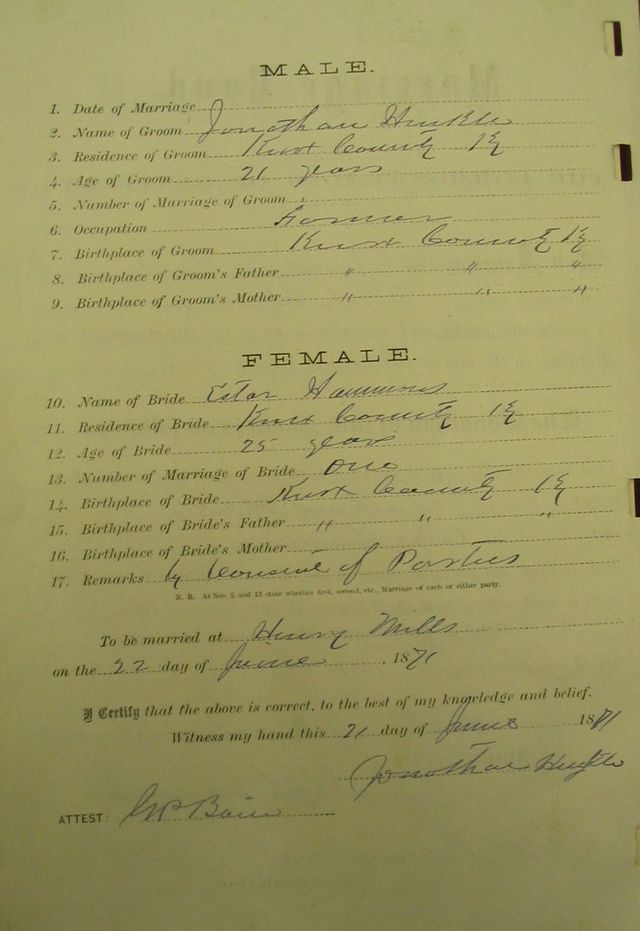 MALE.
1. Date of Marriage
2. Name of Groom Jonathan Hinkle
3. Residence of Groom Knox County Ky
4. Age of Groom 21 years
5. Number of Marriage of Groom
6. Occupation Farmer
7. Birthplace of Groom Knox County Ky
8. Birthplace of Groom's Father " " "
9. Birthplace of Groom's Mother " " "
FEMALE.
10. Name of Bride Ester Hammons
11. Residence of Bride Knox County Ky
12. Age of Bride 25 years
13. Number of Marriage of Bride One
14. Birthplace of Bride Knox County Ky
15. Birthplace of Bride's Father " " "
16. Birthplace of Bride's Mother
17. Remarks by Consent of Parties
N. B. At Nos. 5 and 13 state whether first, second, etc., Marriage of each or either party.
To be married at Henry Mills
on the 22 day of June, 1871
I Certify that the above is correct, to the best of my knowledge and belief.
Witness my hand this 21 day of June 1871
Jonathan Hinkle
ATTEST: